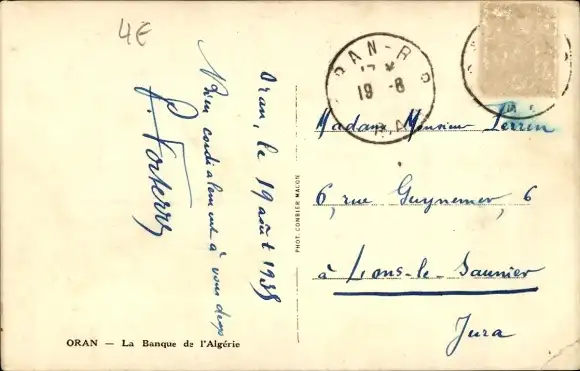 4€
Oran, le 19 août 1935
Bien cordialement à vous deux
ORAN — La Banque de l'Algérie
PHOT. COMBIER MACON
ORAN-R.P
19-8
Madame, Monsieur Perrin
6, rue Guynemer, 6
à Lons-le-Saunier
Jura